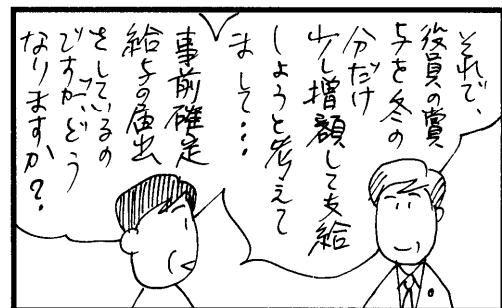 それで、
役員の賞
与を冬の
分だけ
少し増額して支給
しようと考えて
まして・・
事前確定
給与の届出
をしているの
ですが、どう
なりますか？